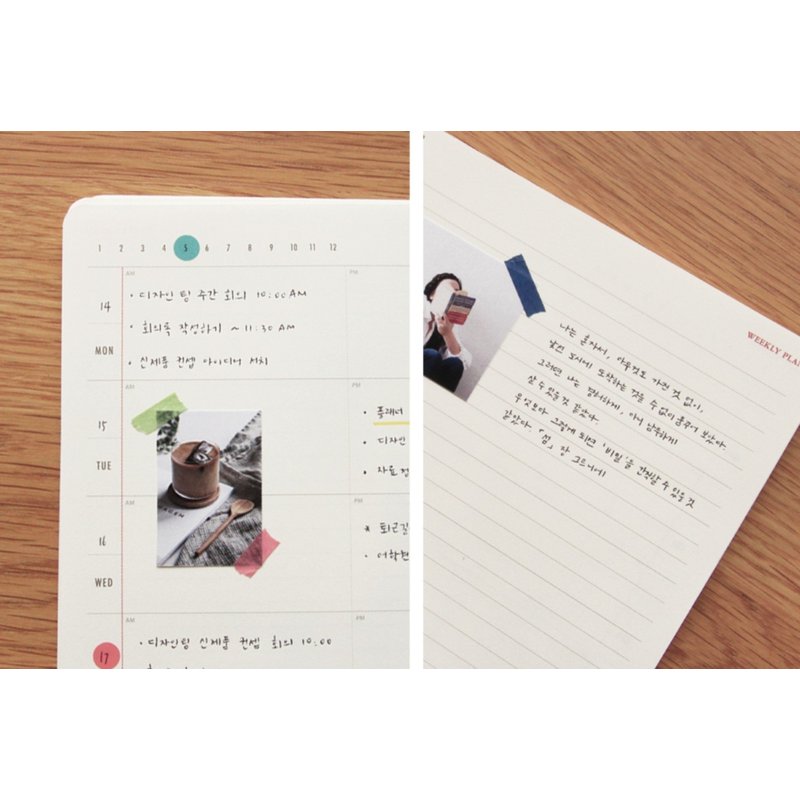 1 2 3 4 5 6 7 8 9 10 11 12
AM
PM
14
MON
· 디자인 팀 주간 회의 10:00 AM
· 회의록 작성하기 ~ 11:30 AM
· 신제품 컨셉 아이디어 서치
AM
15
TUE
· 플래너
· 디자인
· 자료 정
AM
16
WED
* 퇴근길
· 어학연
AM
PM
17
· 디자인팀 신제품 컨셉 회의 10:00
WEEKLY PLA
나는 혼자서, 아무것도 가진 것 없이,
낯선 도시에 도착하는 것을 수없이 꿈꾸어 보았다.
그러면 나는 겸허하게, 아니 남루하게
살 수 있을 것 같았다.
무엇보다 그렇게 되면 '비밀'을 간직할 수 있을 것
같았다. 「섬」 장 그르니에